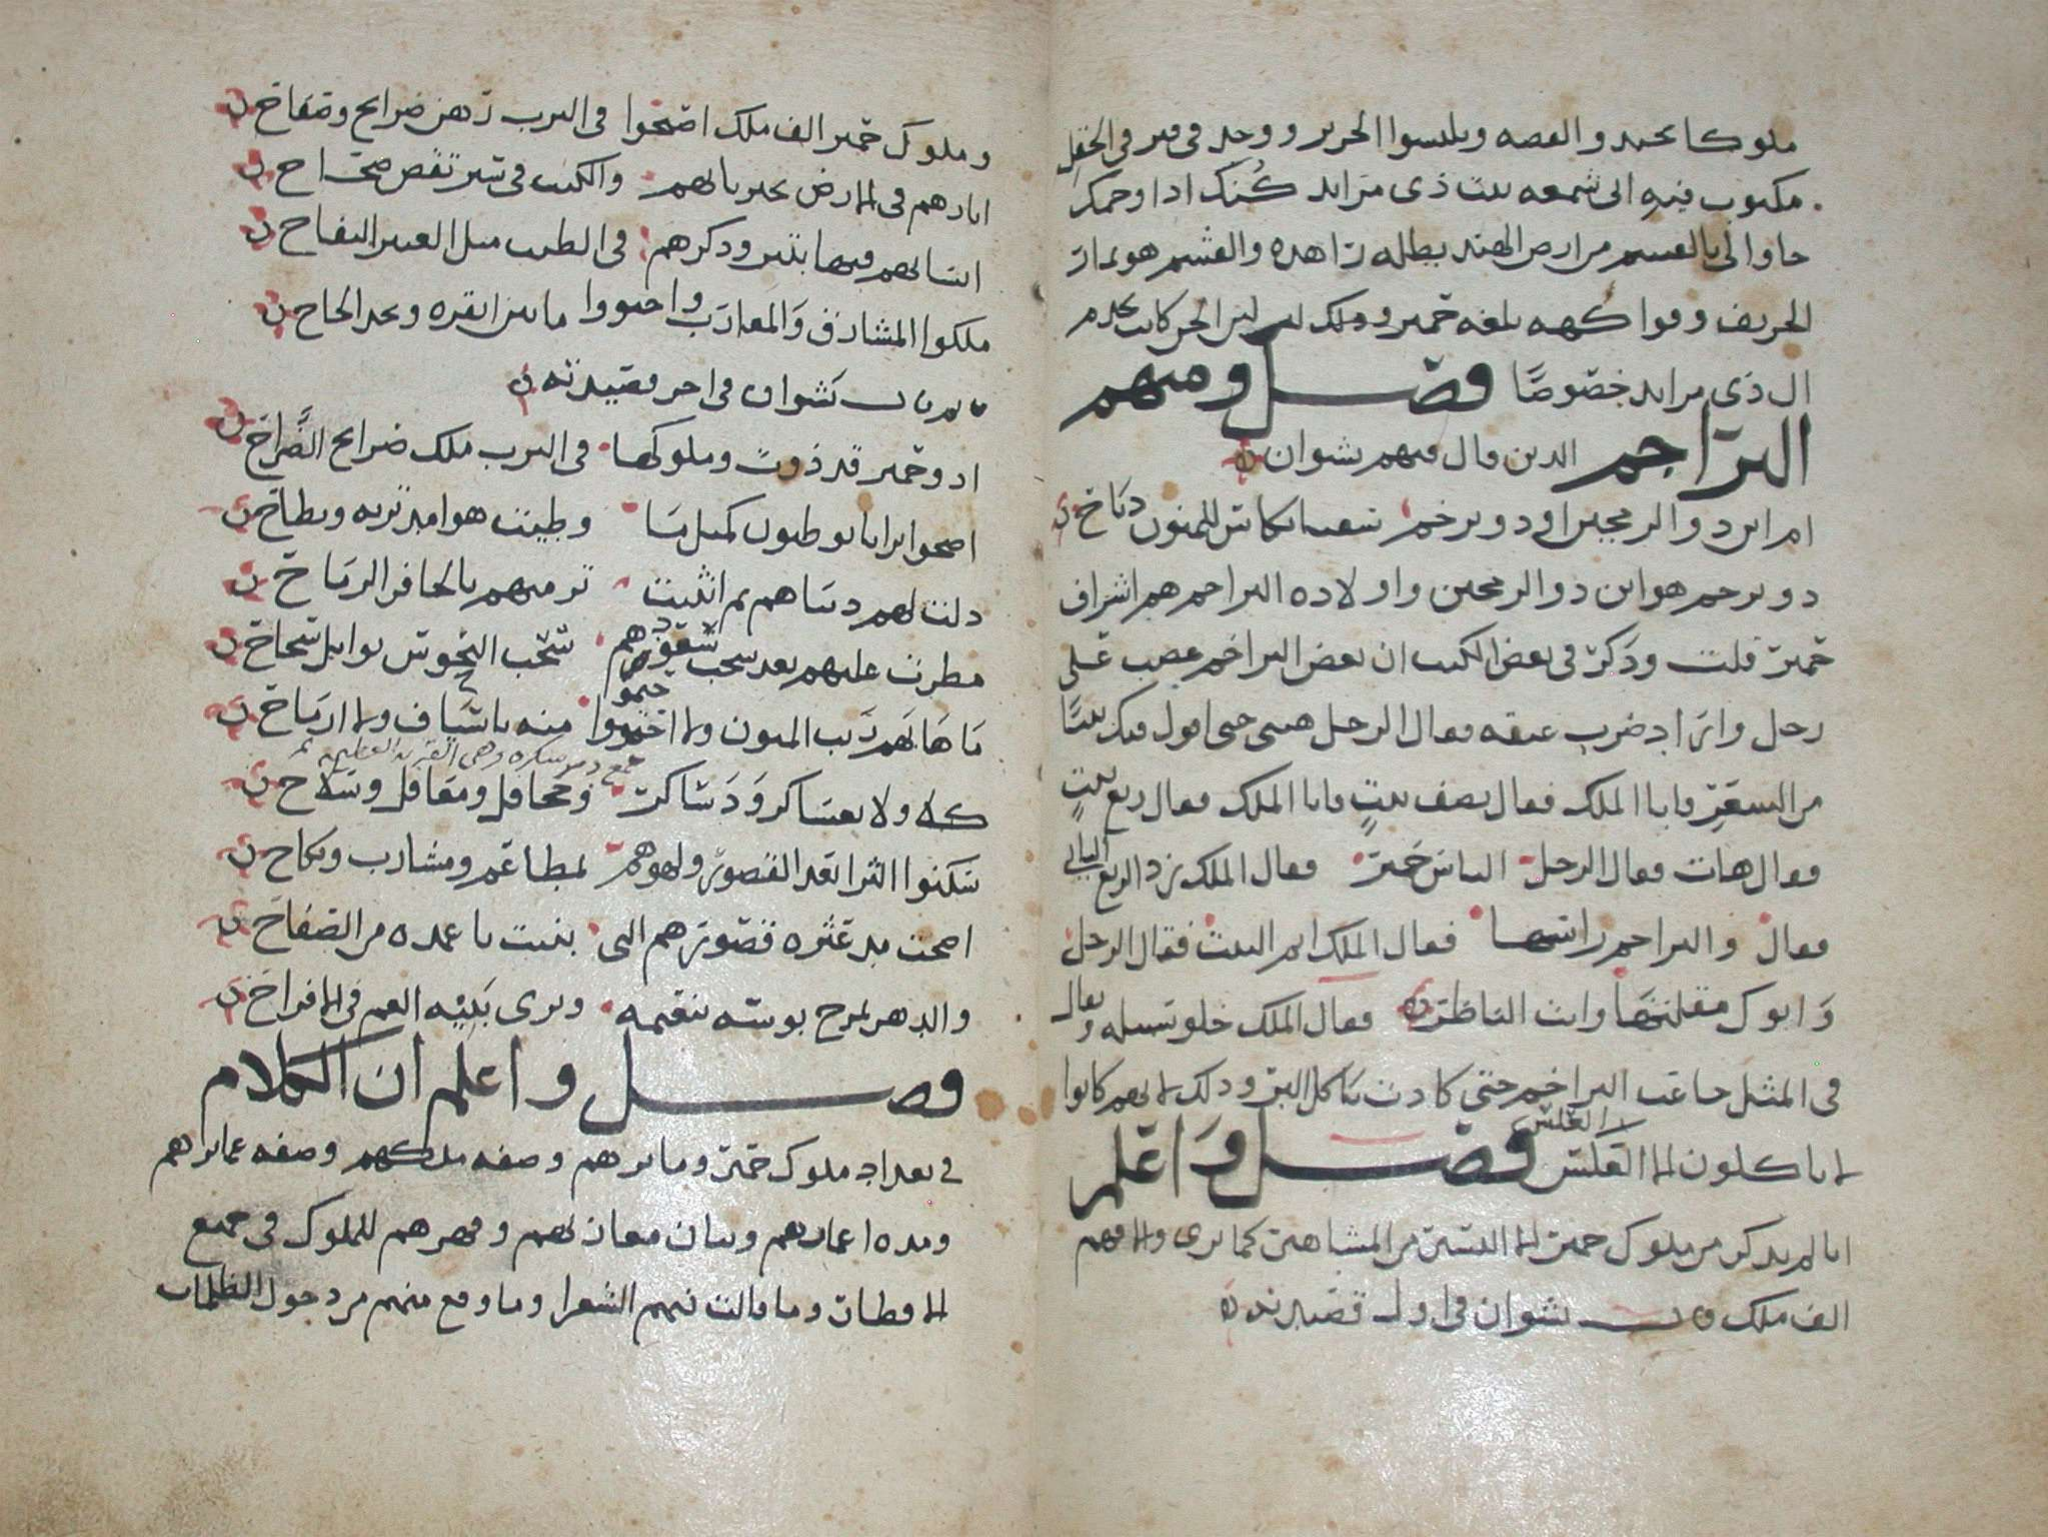 ملوكا بحمد والفصه ويلبسوا الحرير ووجد في قبر في الحقل
مكتوب فيه الى شمعه بنت ذي مراثد كنت اذا وحمت
جاوا لي بالقسم من ارض الهند بطله زاهده والقشم هو ثمار
الخريف وفواكهه بلغه حمير
ال ذي مراثد خصوصا فصل ومنهم
البراجم الذين قال فيهم نشوان
ام اين ذو الرمحين او ذو ترخم
ذو ترخم هو ابن ذو الرمحين واولاده البراجم هم اشراف
حمير قلت وذكر في بعض الكتب ان بعض البراخم غضب على
رجل واراد ضرب عنقه فقال الرجل هبني حتى اقول فيك بيتا
من الشعر فابا الملك فقال نصف بيت فابا الملك فقال ربع بيت
فقال هات فقال الرجل الناس حمير فقال الملك زد الربع الثاني
فقال والبراجم راسها فقال الملك اتم البيت فقال الرجل
وابوك مقلتها وانت الناظر فقال الملك خلو سبيله ويقال
في المثل جاعت البراخم حتى كادت تاكل البر وذلك لانهم كانوا
لا ياكلون الا العلس فصل واعلم
انا لم نذكر من ملوك حمير الا اليسير من المشاهير كما ترى والا فهم
الف ملك قال نشوان في اول قصيدته
وملوك حمير الف ملك اضحوا في الترب رهن ضرايح وصفاح
اثارهم في الارض تخبرنا بهم والكتب في سير تقص صحاح
انسابهم فيها تنير وذكرهم في الطيب مثل العنبر النفاح
ملكوا المشارق والمغارب واحتووا ما بين انقره ونجد الجاح
ثم قال نشوان في اخر قصيدته
اذوا حمير قد ذوت وملوكها في الترب ملك ضرايح الضراح
اضحوا ترابا يوطيون كمثل ما وطيت هوامد تربه وبطاح
دلت لهم دنياهم ثم انثنت ترميهم بالحافر الرماح
مطرت عليهم بعد سحب سعودهم سحب النحوس بوابل سحاح
ما هابهم ريب المنون ولا احتموا منه باسياف ولا ارماح
كلا ولا بعساكر ودساكر وجحافل ومعاقل وسلاح
سكنوا الثرا بعد القصور ولهوهم بمطاعم ومشارب ونكاح
اضحت مدعثره قصورهم التي بنيت باعمده من الصفاح
والدهر يمزج بوسه بنعيمه ويرى بنيه الغم في الافراح
فصل واعلم ان الكلام
في تعداد ملوك حمير وماثرهم وصفه ملكهم وصفه عمايرهم
ومده اعمارهم وبيان مغازيهم وقهرهم للملوك في جميع
الاقطار وما قالت فيهم الشعرا وما وقع منهم من دخول الظلمات